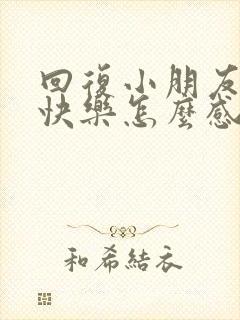 回復小朋友
快樂怎麼感
和希結衣